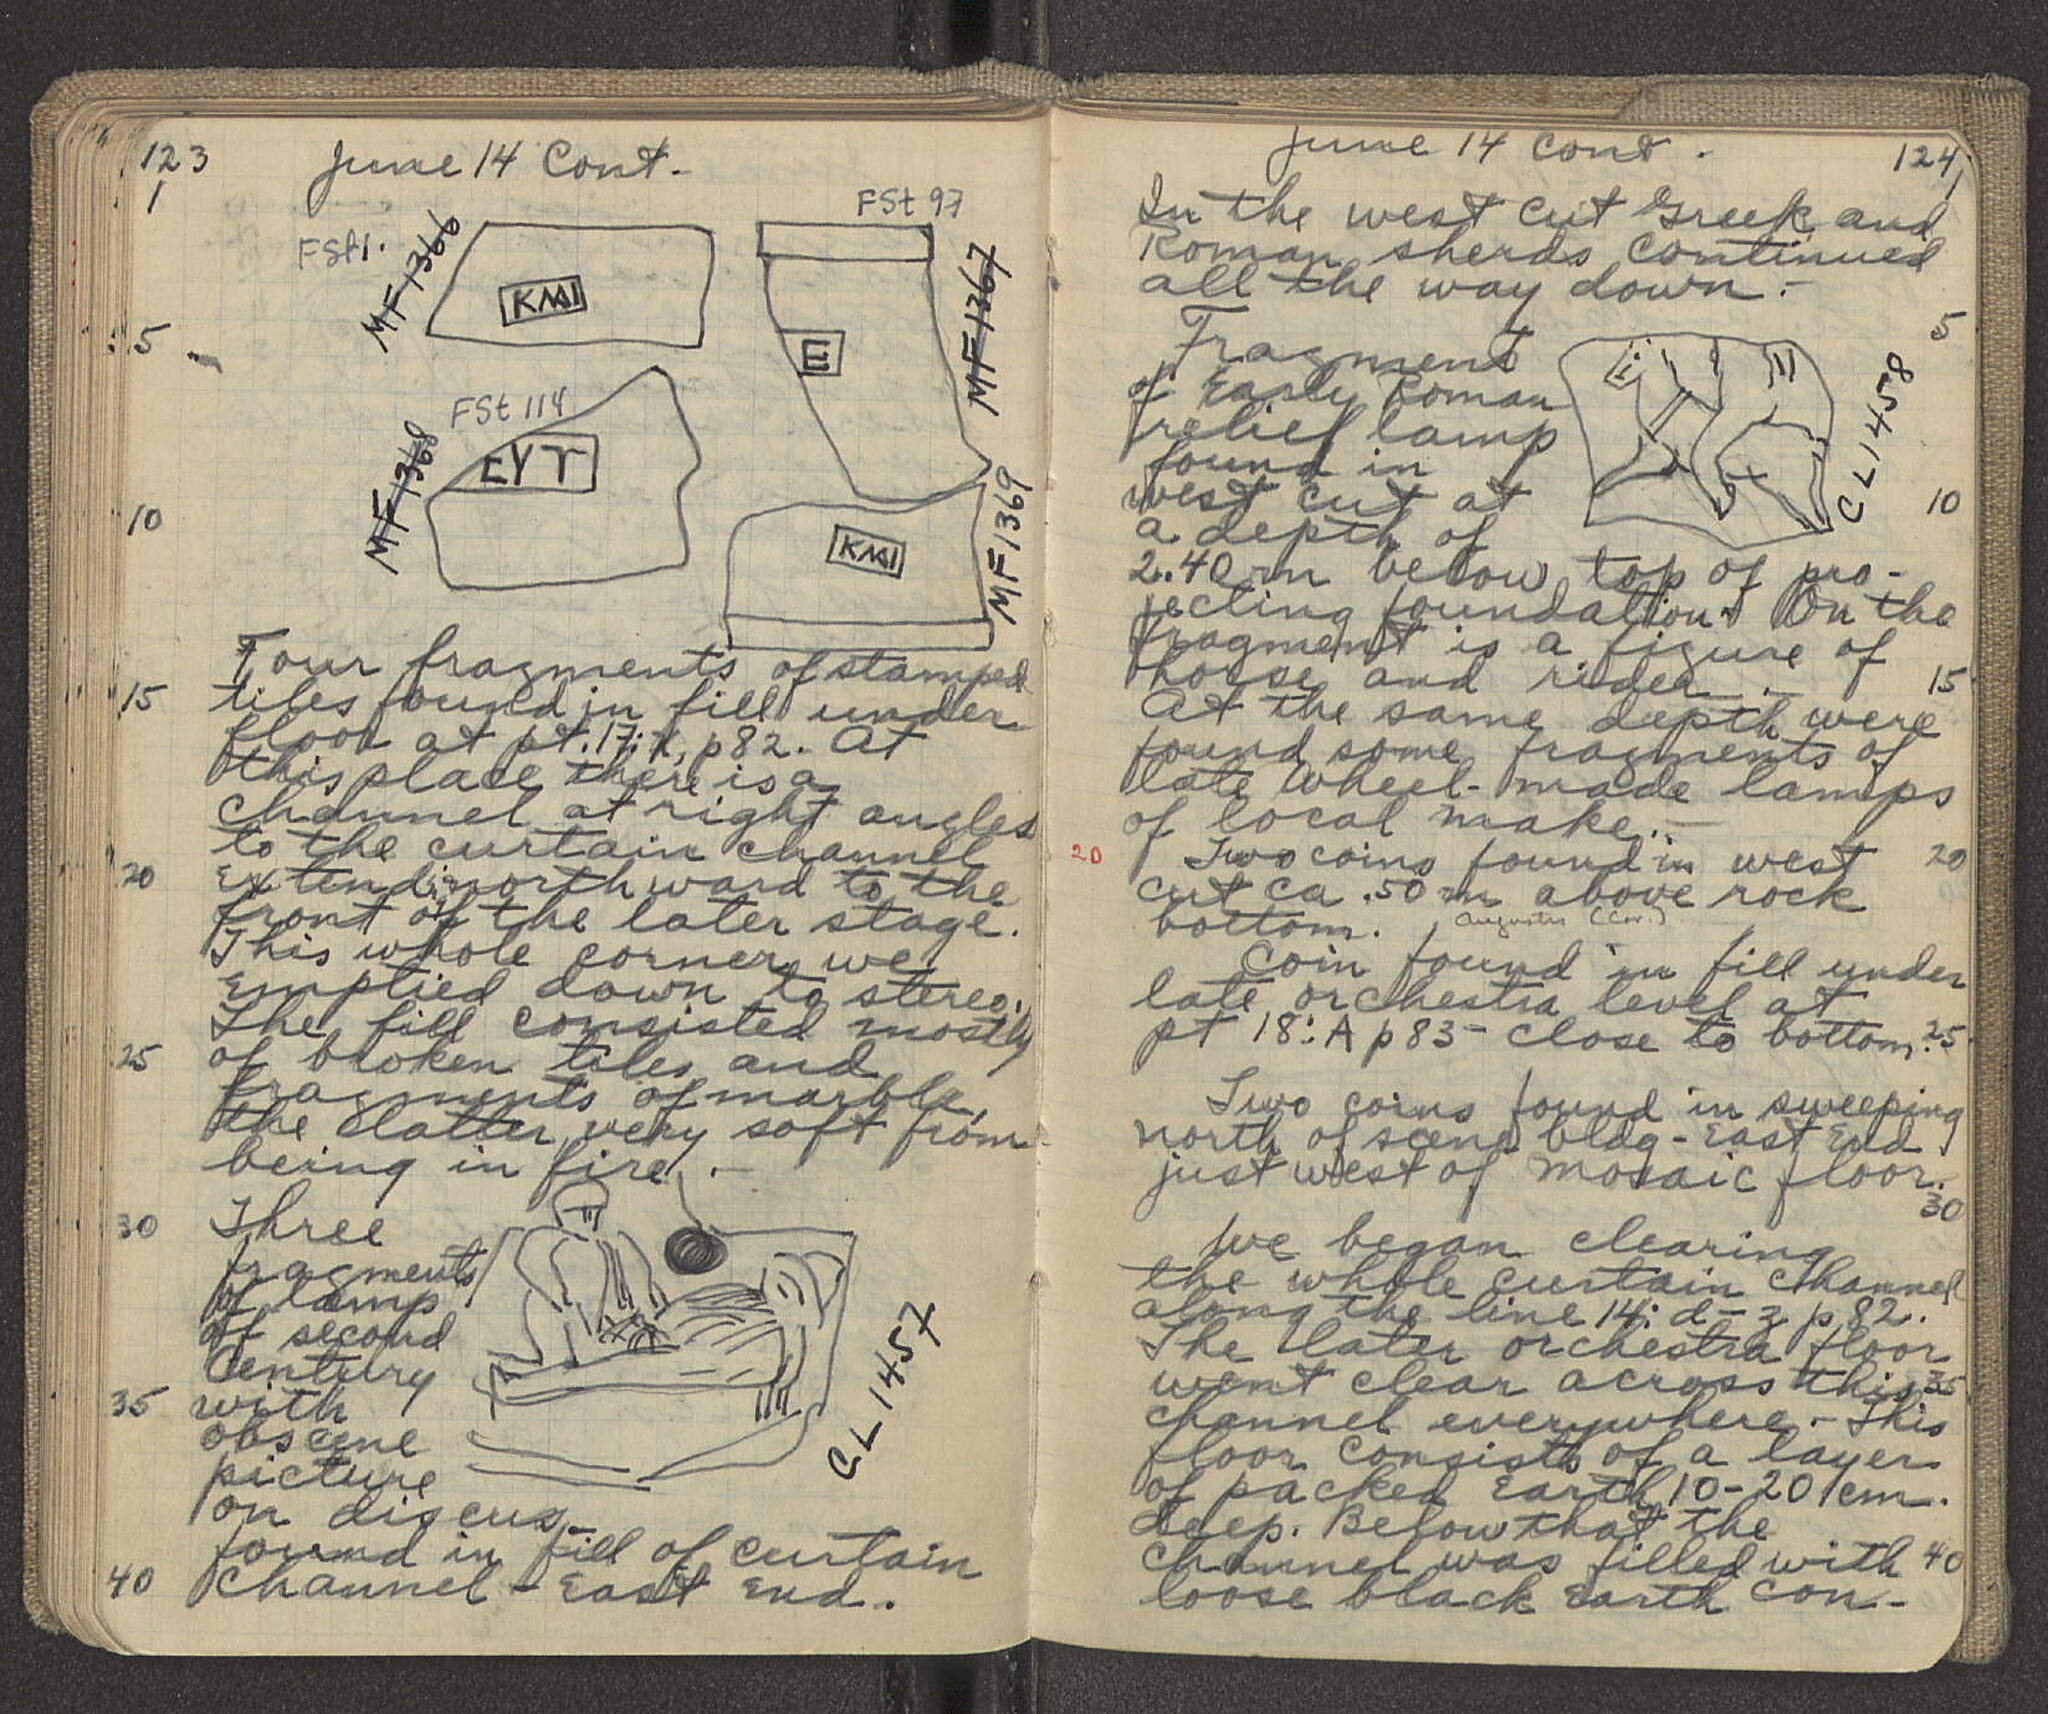 123
June 14 Cont.
1
FSt 1.
MF 1366
KMI
FSt 97
MF 1367
E
5
FSt 114
MF 1368
EYT
10
KMI
MF 1369
Four fragments of stamped
15 tiles found in fill under
floor at pt. 17: , p 82. At
this place there is a
channel at right angles
to the curtain channel
20 extending northward to the
front of the later stage.
This whole corner we
emptied down to stereo.
The fill consisted mostly
25 of broken tiles and
fragments of marble,
the latter very soft from
being in fire. –
30 Three
fragments
of lamp
of second
Century
35 with
obscene
picture
on discus
found in fill of curtain
40 channel – East End.
CL 1457
June 14 Cont.
124
1
In the west cut Greek and
Roman sherds continued
all the way down. –
5
Fragment
of Early Roman
relief lamp
found in
west cut at 10
a depth of
CL 1458
2.40 m below top of pro-
jecting foundation. On the
fragment is a figure of
horse and rider. – 15
At the same depth were
found some fragments of
late wheel-made lamps
of local make. –
20 Two coins found in west 20
cut ca .50 m above rock
bottom.
Augustus (Cor.)
Coin found in fill under
late orchestra level at
pt 18:A p 83 – close to bottom. 25
Two coins found in sweeping
north of scene bldg – East End
just west of mosaic floor.
30
We began clearing
the whole curtain channel
along the line 14: d – z p 82.
The later orchestra floor
went clear across this 35
channel everywhere. – This
floor consists of a layer
of packed earth 10–20 cm.
deep. Below that the
channel was filled with 40
loose black earth con-